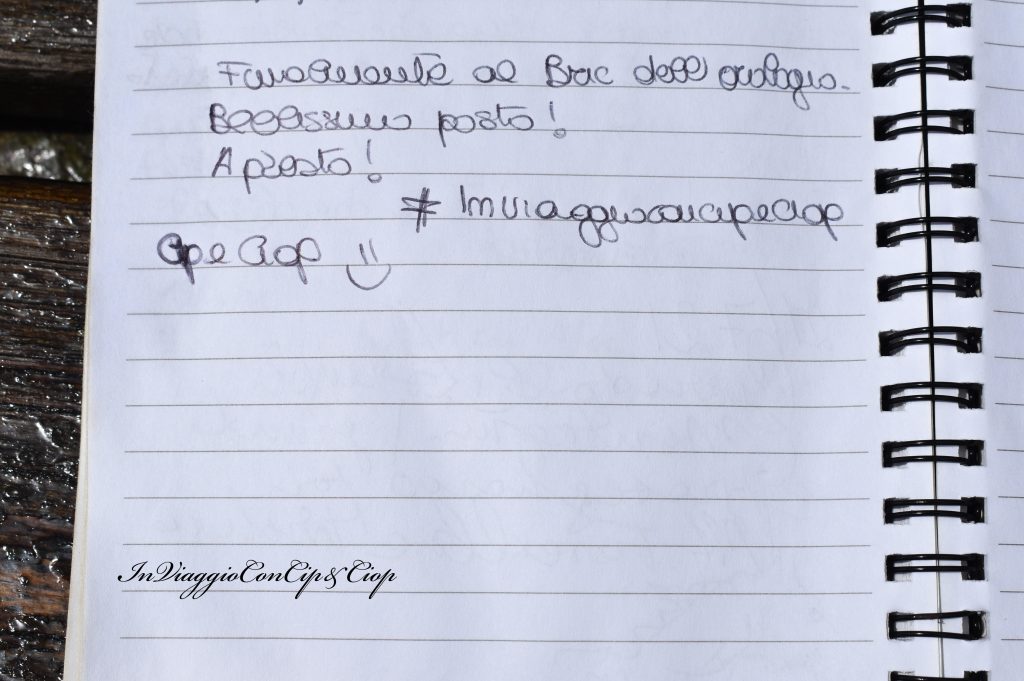 Finalmente al Bric dell'orologio.
Bellissimo posto!
A presto!
#Inviaggioconcipeciop
Cip e Ciop
InViaggioConCip&Ciop